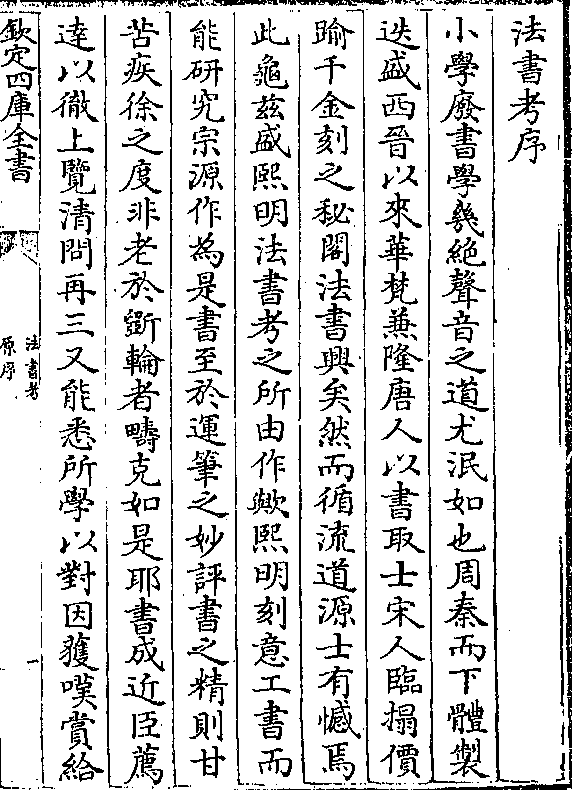 法書考序
小學廢書學㡬絶聲音之道尤泯如也周秦而下體製
迭盛西晉以來華梵兼隆唐人以書取士宋人臨搨價
踰千金刻之秘閣法書興矣然而循流遡源士有憾焉
此龜兹盛熙明法書考之所由作歟熙明刻意工書而
能研究宗源作為是書至於運筆之妙評書之精則甘
苦疾徐之度非老於斲輪者疇克如是耶書成近臣薦
達以徹上覽清問再三又能悉所學以對因獲嘆賞給
欽定四庫全書
法書考
原序
一